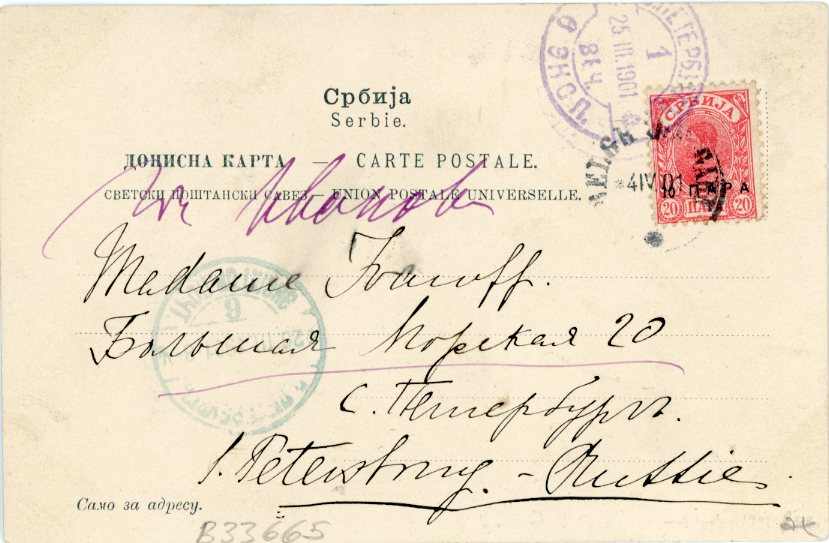 Србија
Serbie.
ДОПИСНА КАРТА — CARTE POSTALE.
СВЕТСКИ ПОШТАНСКИ САВЕЗ — UNION POSTALE UNIVERSELLE.
Ивановой
Madame Ivanoff.
Большая Морская 20
С. Петербургъ.
S. Petersburg. – Russie
Само за адресу.
B33665
1
25.III.1901
8 1 Ч.
СРБИЈА
10 ПАРА
20
20
*4IV.01
6